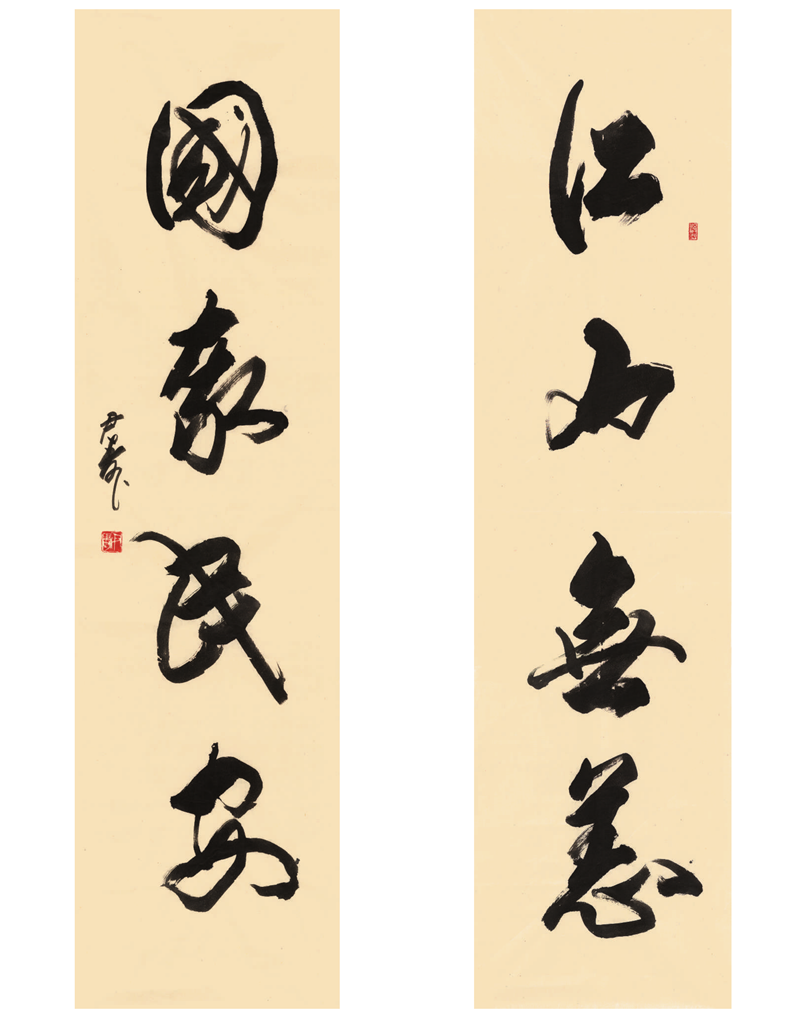 江山無恙
國泰民安